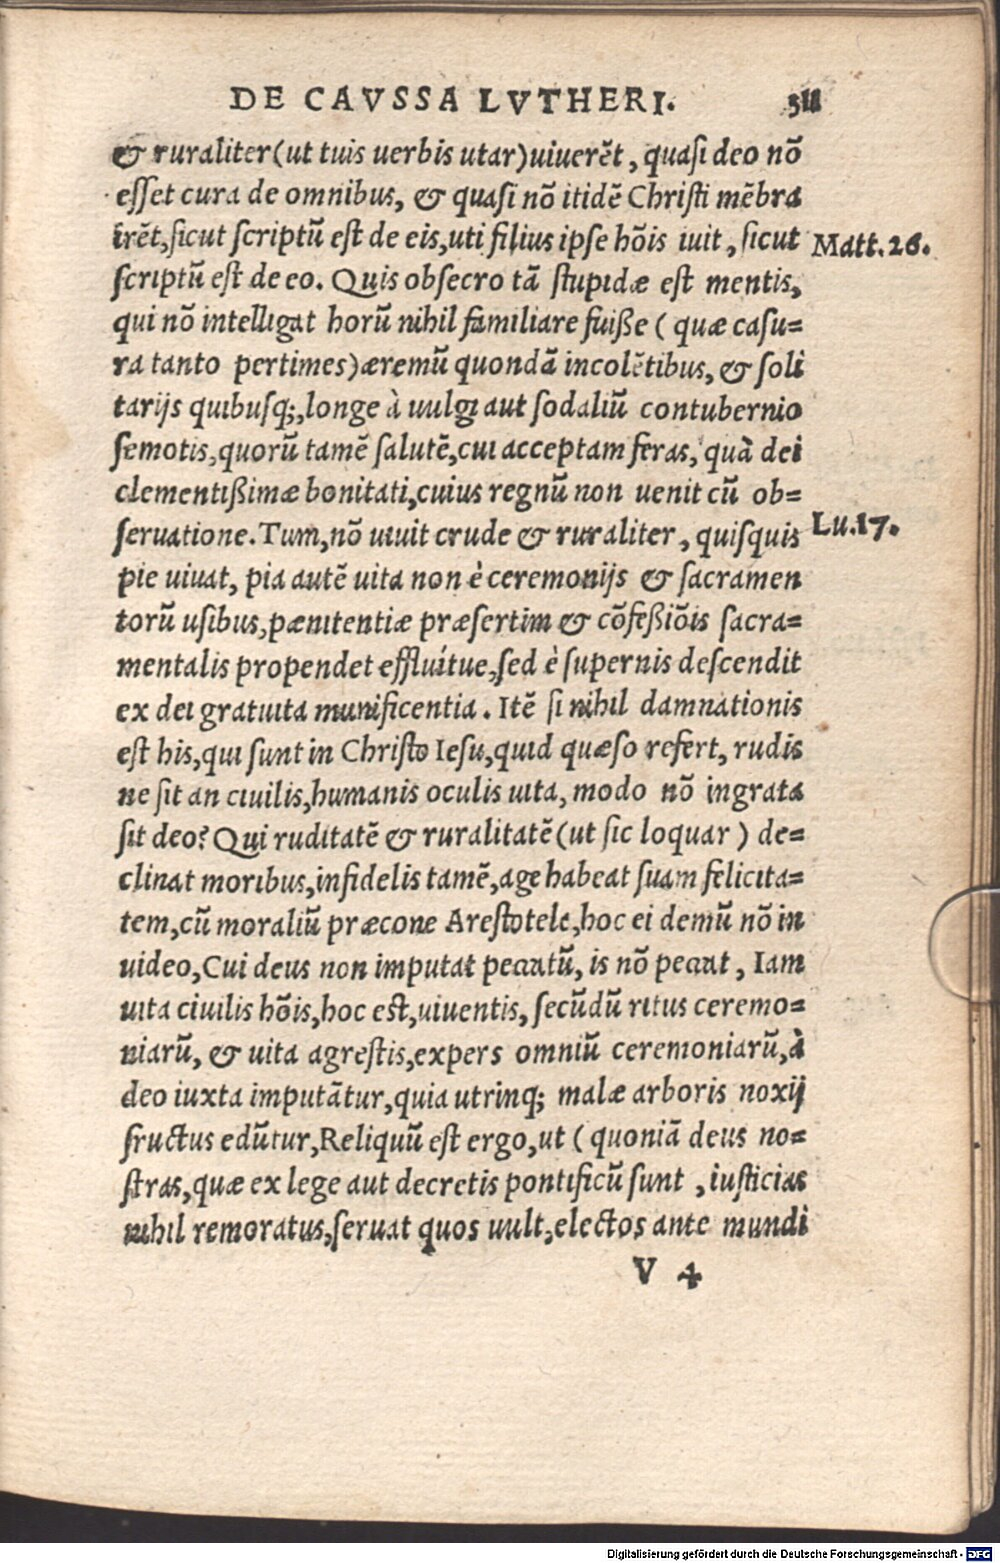 DE CAVSSA LVTHERI. 311
& ruraliter (ut tuis uerbis utar) uiuerẽt, quasi deo nõ
esset cura de omnibus, & quasi nõ itidẽ Christi mẽbra
irẽt, sicut scriptũ est de eis, uti filius ipse hõis iuit, sicut Matt. 26.
scriptũ est de eo. Quis obsecro tã stupidæ est mentis,
qui nõ intelligat horũ nihil familiare fuiße (quæ casu=
ra tanto pertimes) æremũ quondã incolẽtibus, & soli
tarijs quibusq;, longe à uulgi aut sodaliũ contubernio
semotis, quorũ tamẽ salutẽ, cui acceptam feras, quà dei
clementißimæ bonitati, cuius regnũ non uenit cũ ob=
seruatione. Tum, nõ uiuit crude & ruraliter, quisquis Lu. 17.
pie uiuat, pia autẽ uita non è ceremonijs & sacramen
torũ usibus, pænitentiæ præsertim & cõfeßiõis sacra=
mentalis propendet effluítue, sed è supernis descendit
ex dei gratuita munificentia. Itẽ si nihil damnationis
est his, qui sunt in Christo Iesu, quid quæso refert, rudis
ne sit an ciuilis, humanis oculis uita, modo nõ ingrata
sit deo? Qui ruditatẽ & ruralitatẽ (ut sic loquar) de=
clinat moribus, infidelis tamẽ, age habeat suam felicita=
tem, cũ moraliũ præcone Arestotele, hoc ei demũ nõ in
uideo, Cui deus non imputat peccatũ, is nõ peccat, Iam
uita ciuilis hõis, hoc est, uiuentis, secũdũ ritus ceremo=
niarũ, & uita agrestis, expers omniũ ceremoniarũ, à
deo iuxta imputãtur, quia utrinq; malæ arboris noxij
fructus edũtur, Reliquũ est ergo, ut (quoniã deus no=
stras, quæ ex lege aut decretis pontificũ sunt, iusticias
nihil remoratus, seruat quos uult, electos ante mundi
V 4
Digitalisierung gefördert durch die Deutsche Forschungsgemeinschaft - DFG